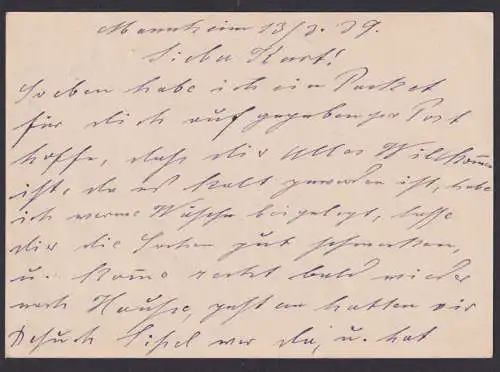 Mannheim 13/3. 39.
Lieber Kurt!
Soeben habe ich ein Packet
für dich auf gegebenger Post
hoffe, daß dir Alles Willkomen
ist, da es kalt geworden ist, habe
ich warme Wäsche beigelegt, lasse
dir die Sachen gut schmecken,
u. kome recht bald wieder
nach Hause, gestern hatten wir
Besuch Lisel war da, u. hat